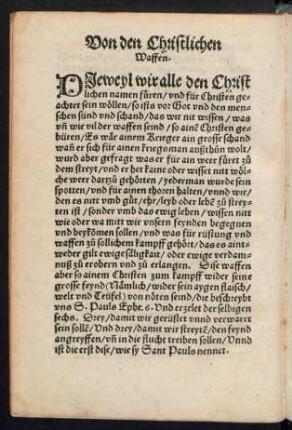 Von den Christlichen
Waffen.
DJeweyl wir alle den Christ
lichen namen füren/ vnd für Christen ge-
achtet sein wöllen/ so ists vor Got vnd den men-
schen sünd vnd schand/ das wir nit wissen/ was
vn̄ wie vil der waffen seind/ so ainē Christen ge-
büren/ Es wår ainem Krieger ain grosse schand
wañ er sich für ainen kriegsman außthůn wolt/
wurd aber gefragt was er für ain weer füret zu
dem streyt/ vnd er het kaine oder wisset nitt wöl-
che weer darzů gehörten/ yederman wurde sein
spotten/ vnd für ainen thoren halten/ vnnd wir/
den es nitt vmb gůt/ ehr/ leyb oder lebē zů strey-
ten ist/ sonder vmb das ewig leben/ wissen nitt
wie oder wa mitt wir vnsern feynden begegnen
vnd beykömen sollen/ vnd was für rüstung vnd
waffen zů sollichem kampff gehört/ das es aint-
weder gilt ewige såligkait/ oder ewige verdam-
nuß zů erobern vnd zů erlangen. Dise waffen
aber so ainem Christen zum kampff wider seine
grosse feynd (Nåmlich/ wider sein aygen flaisch/
welt vnd Teüfel) von nöten seind/ die beschreybt
vns S. Pauls Ephe. 6. vnd erzelet der selbigen
sechs. Drey/ damit wir gerüstet vnnd verwaret
sein sollē/ Vnd drey/ damit wir streytē/ den feynd
angreyffen/ vn̄ in die flucht treiben sollen/ Vnnd
ist die erst dise/ wie sy Sant Pauls nennet.